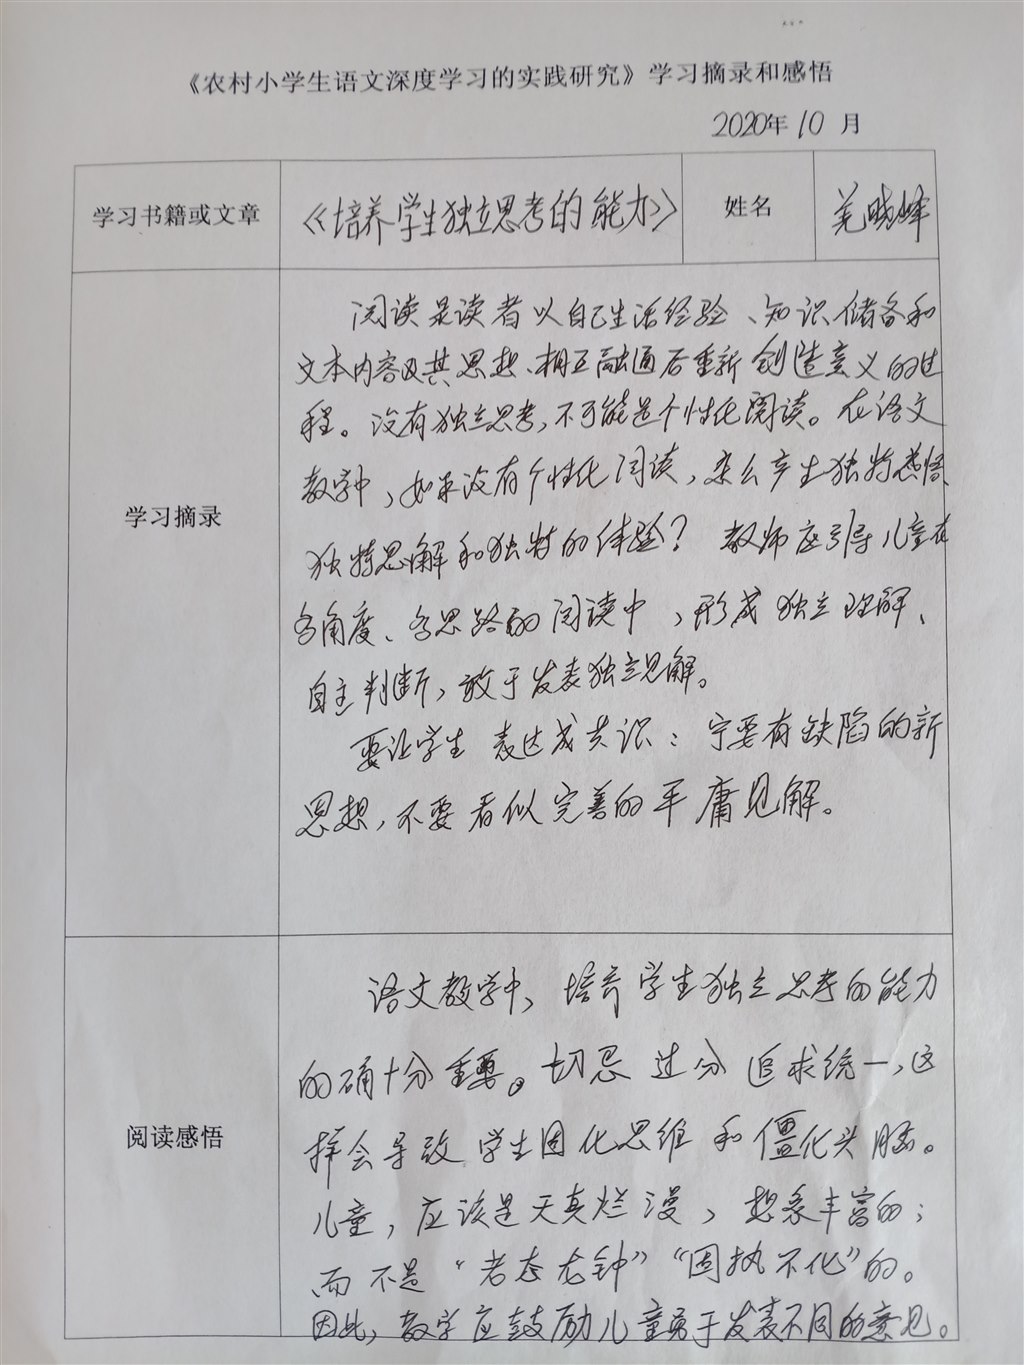 《农村小学生语文深度学习的实践研究》学习摘录和感悟
2020年10月
学习书籍或文章
《培养学生独立思考的能力》
姓名
羌晓峰
学习摘录
阅读是读者以自己生活经验、知识储备和
文本内容及其思想、相互融通后重新创造意义的过
程。没有独立思考,不可能是个性化阅读。在语文
教学中,如果没有个性化阅读,怎么产生独特感悟、
独特思解和独特的体验?教师应引导儿童在
多角度、多思路的阅读中,形成独立理解、
自主判断,敢于发表独立见解。
要让学生表达成共识:宁要有缺陷的新
思想,不要看似完善的平庸见解。
阅读感悟
语文教学中,培养学生独立思考的能力
的确十分重要。切忌过分追求统一,这
样会导致学生固化思维和僵化头脑。
儿童,应该是天真烂漫,想象丰富的;
而不是“老态龙钟”“固执不化”的。
因此,教学应鼓励儿童勇于发表不同的意见。